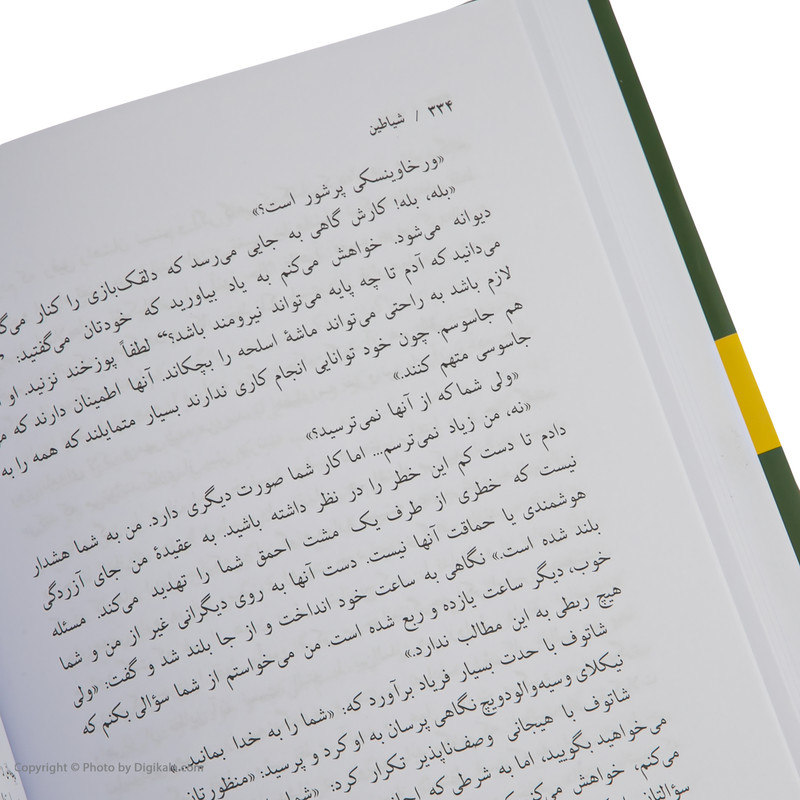 ۳۳۴ / شیاطین
«ورخاوینسکی پرشور است؟»
«بله، بله! کارش گاهی به جایی می‌رسد که دلقک‌بازی را کنار
دیوانه می‌شود. خواهش می‌کنم به یاد بیاورید که خودتان می‌گفتید:
می‌دانید که آدم تا چه پایه می‌تواند نیرومند باشد؟“ لطفاً پوزخند نزنید. او
لازم باشد به راحتی می‌تواند ماشهٔ اسلحه را بچکاند. آنها اطمینان دارند که
هم جاسوسم. چون خود توانایی انجام کاری ندارند بسیار متمایلند که همه را به
جاسوسی متهم کنند.»
«ولی شما که از آنها نمی‌ترسید؟»
«نه، من زیاد نمی‌ترسم... اما کار شما صورت دیگری دارد. من به شما هشدار
دادم تا دست کم این خطر را در نظر داشته باشید. به عقیدهٔ من جای آزردگی
نیست که خطری از طرف یک مشت احمق شما را تهدید می‌کند. مسئله
هوشمندی یا حماقت آنها نیست. دست آنها به روی دیگرانی غیر از من و شما
بلند شده است.» نگاهی به ساعت خود انداخت و از جا بلند شد و گفت: «ولی
خوب، دیگر ساعت یازده و ربع شده است. من می‌خواستم از شما سؤالی بکنم که
هیچ ربطی به این مطالب ندارد.»
شاتوف با حدت بسیار فریاد برآورد که: «شما را به خدا بمانید
نیکلای وسیه‌والودویچ نگاهی پرسان به او کرد و پرسید: «منظورتان
شاتوف با هیجانی وصف‌ناپذیر تکرار کرد: «شما
می‌خواهید بگویید، اما به شرطی که
می‌کنم، خواهش می‌کنم
سؤالتان
Copyright © Photo by Digikala.com